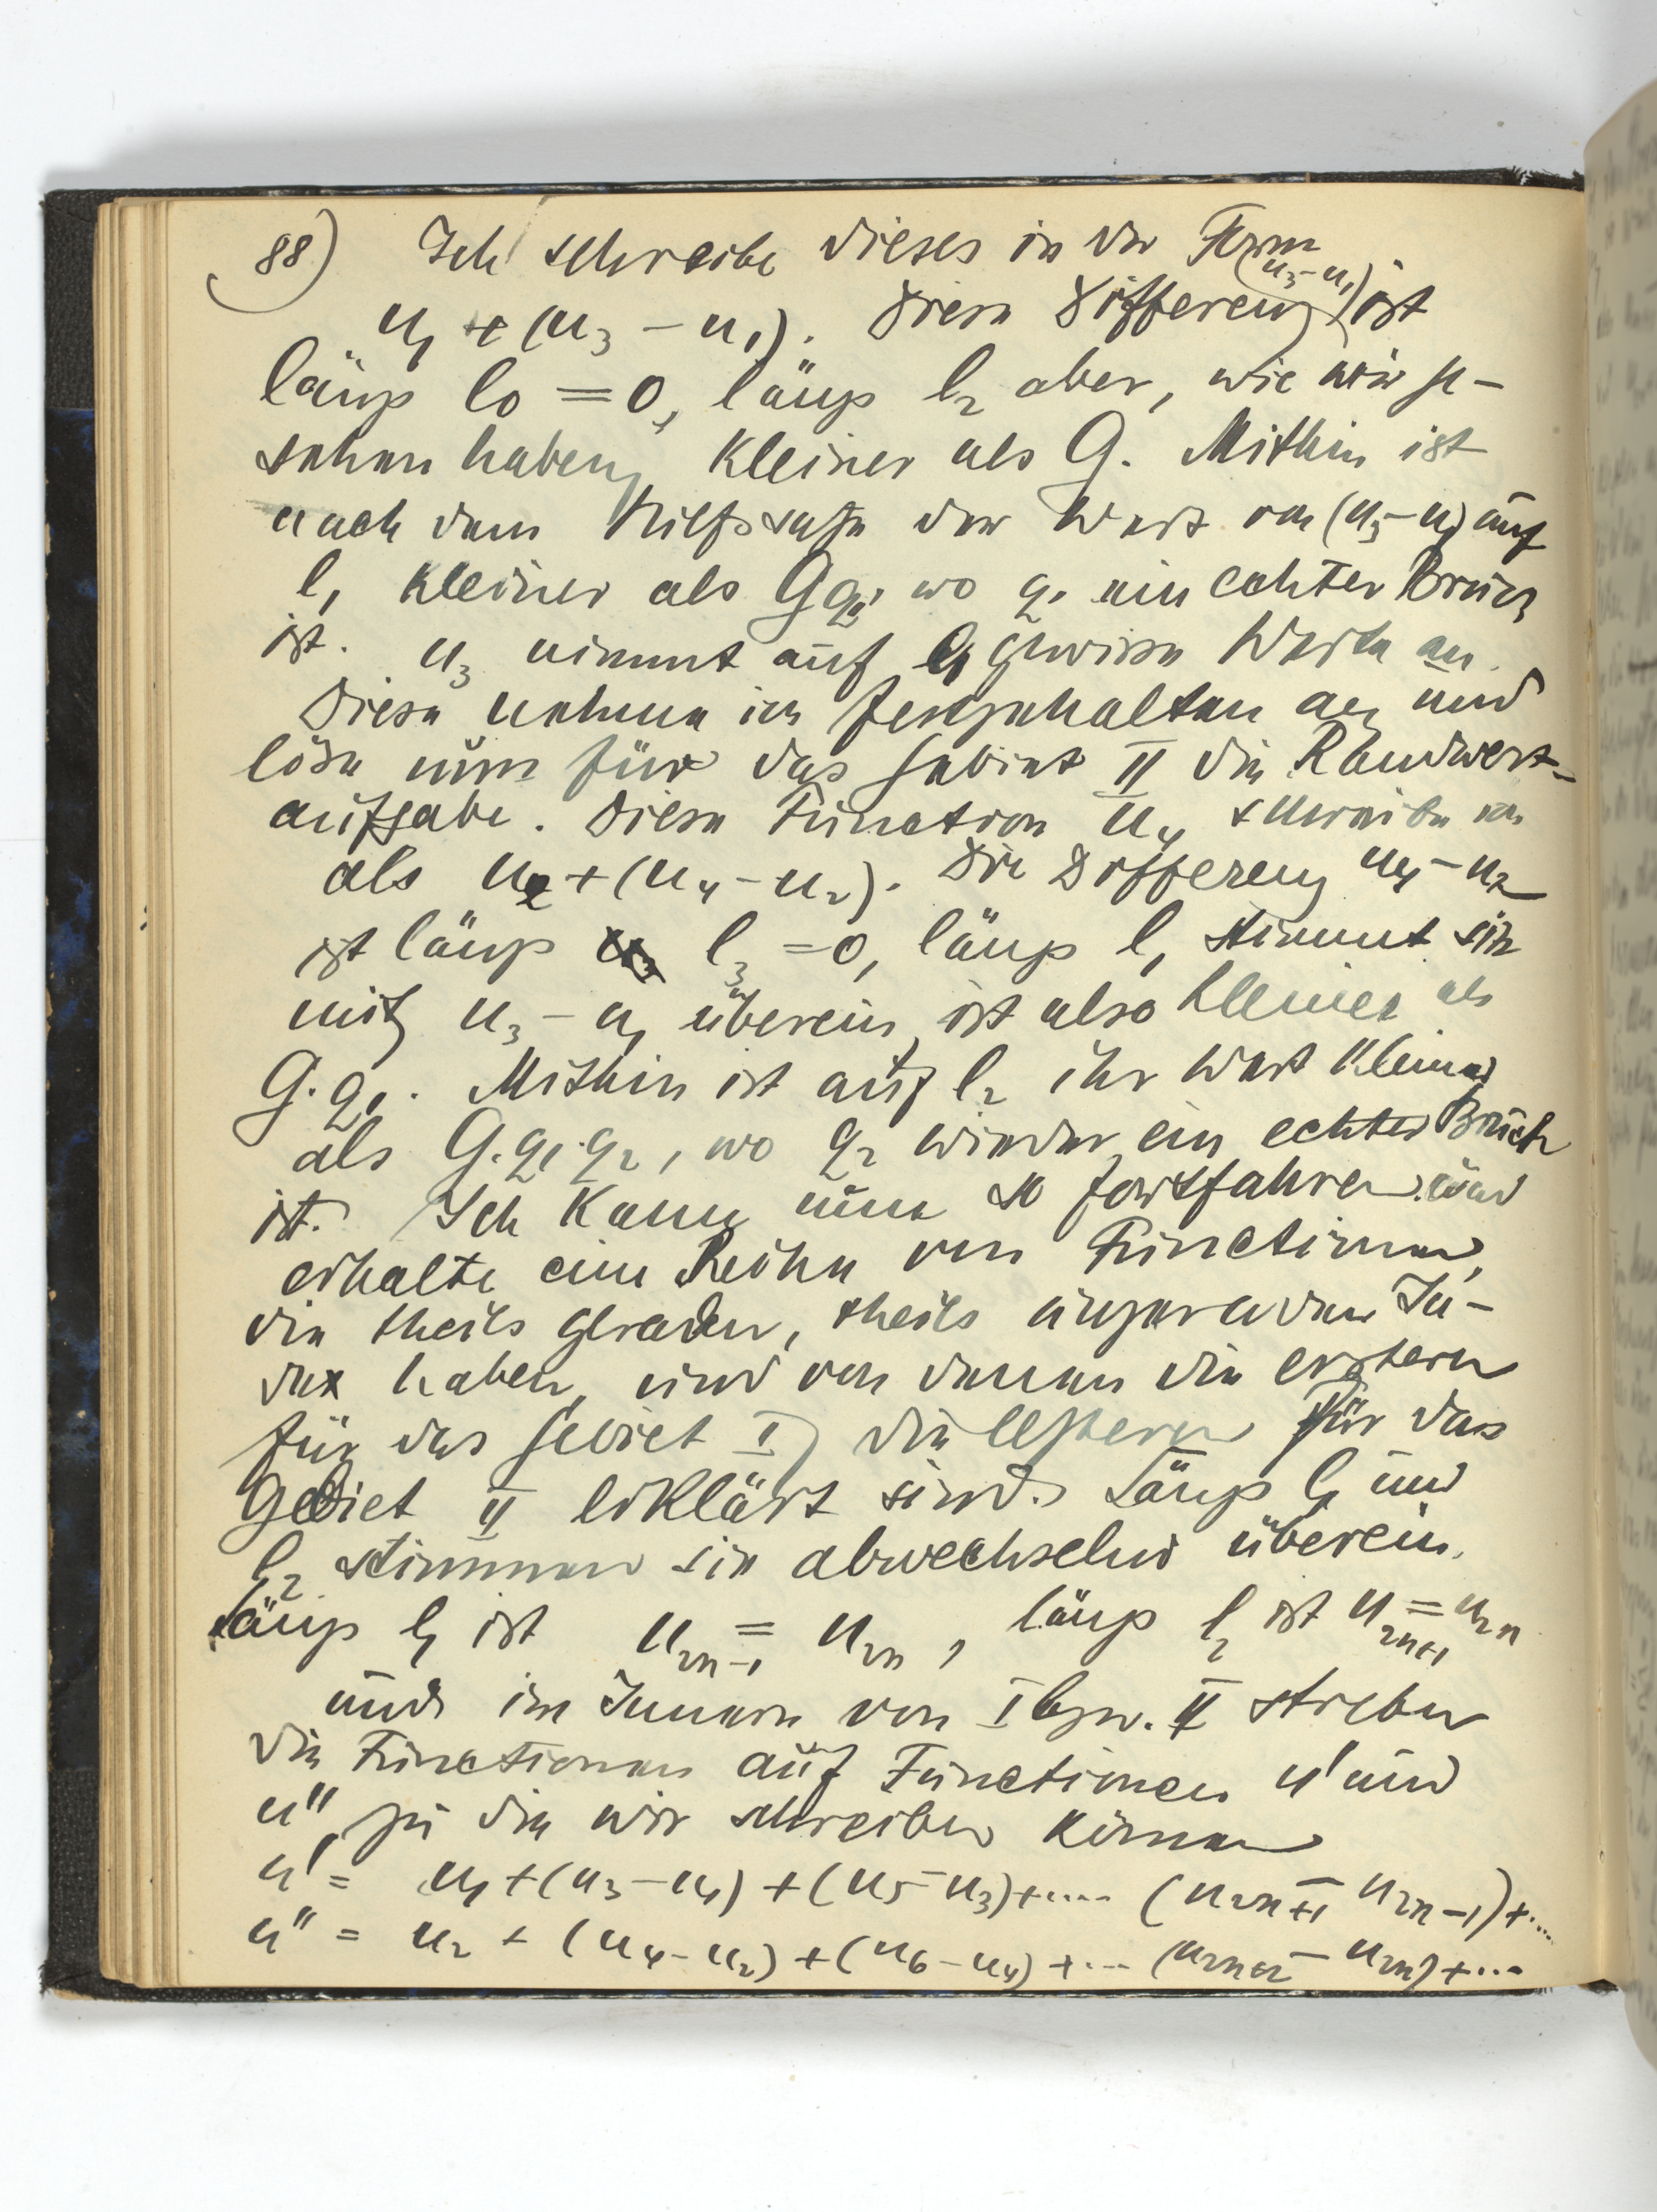 88) Ich schreibe dieses in der Form
u₁ + (u₃ – u₁). Diese Differenz (u₃–u₁) ist
längs l₀ = 0, längs l₂ aber, wie wir ge-
sehen haben, kleiner als G. Mithin ist
nach dem Hilfssatze der Wert von (u₃–u₁) auf
l₁ kleiner als Gq₁, wo q₁ ein echter Bruch
ist. u₃ nimmt auf l₁ gewisse Werte an.
Diese nehme ich festgehalten an und
löse nun für das Gebiet II die Randwert-
aufgabe. Diese Function u₄ schreibe ich
als u₂ + (u₄ – u₂). Die Differenz u₄ – u₂
ist längs l₃ = 0, längs l₁ stimmt sie
mit u₃ – u₁ überein, ist also kleiner als
G. q₁. Mithin ist auf l₂ ihr Wert kleiner
als G. q₁. q₂, wo q₂ wieder ein echter Bruch
ist. Ich kann nun so fortfahren und
erhalte eine Reihe von Functionen,
die theils geraden, theils ungeraden In-
dex haben, und von denen die erstern
für das Gebiet I, die letztern für das
Gebiet II erklärt sind. Längs l₁ und
l₂ stimmen sie abwechselnd überein.
Längs l₁ ist u₂ₙ₋₁ = u₂ₙ, längs l₂ ist u₂ₙ₊₁ = u₂ₙ
und im Innern von I bzw. II streben
die Functionen auf Functionen u' und
u'' zu die wir schreiben können
u' = u₁ + (u₃ – u₁) + (u₅ – u₃) + .... (u₂ₙ₊₁ – u₂ₙ₋₁) + ....
u'' = u₂ + (u₄ – u₂) + (u₆ – u₄) + ... (u₂ₙ₊₂ – u₂ₙ) + ...